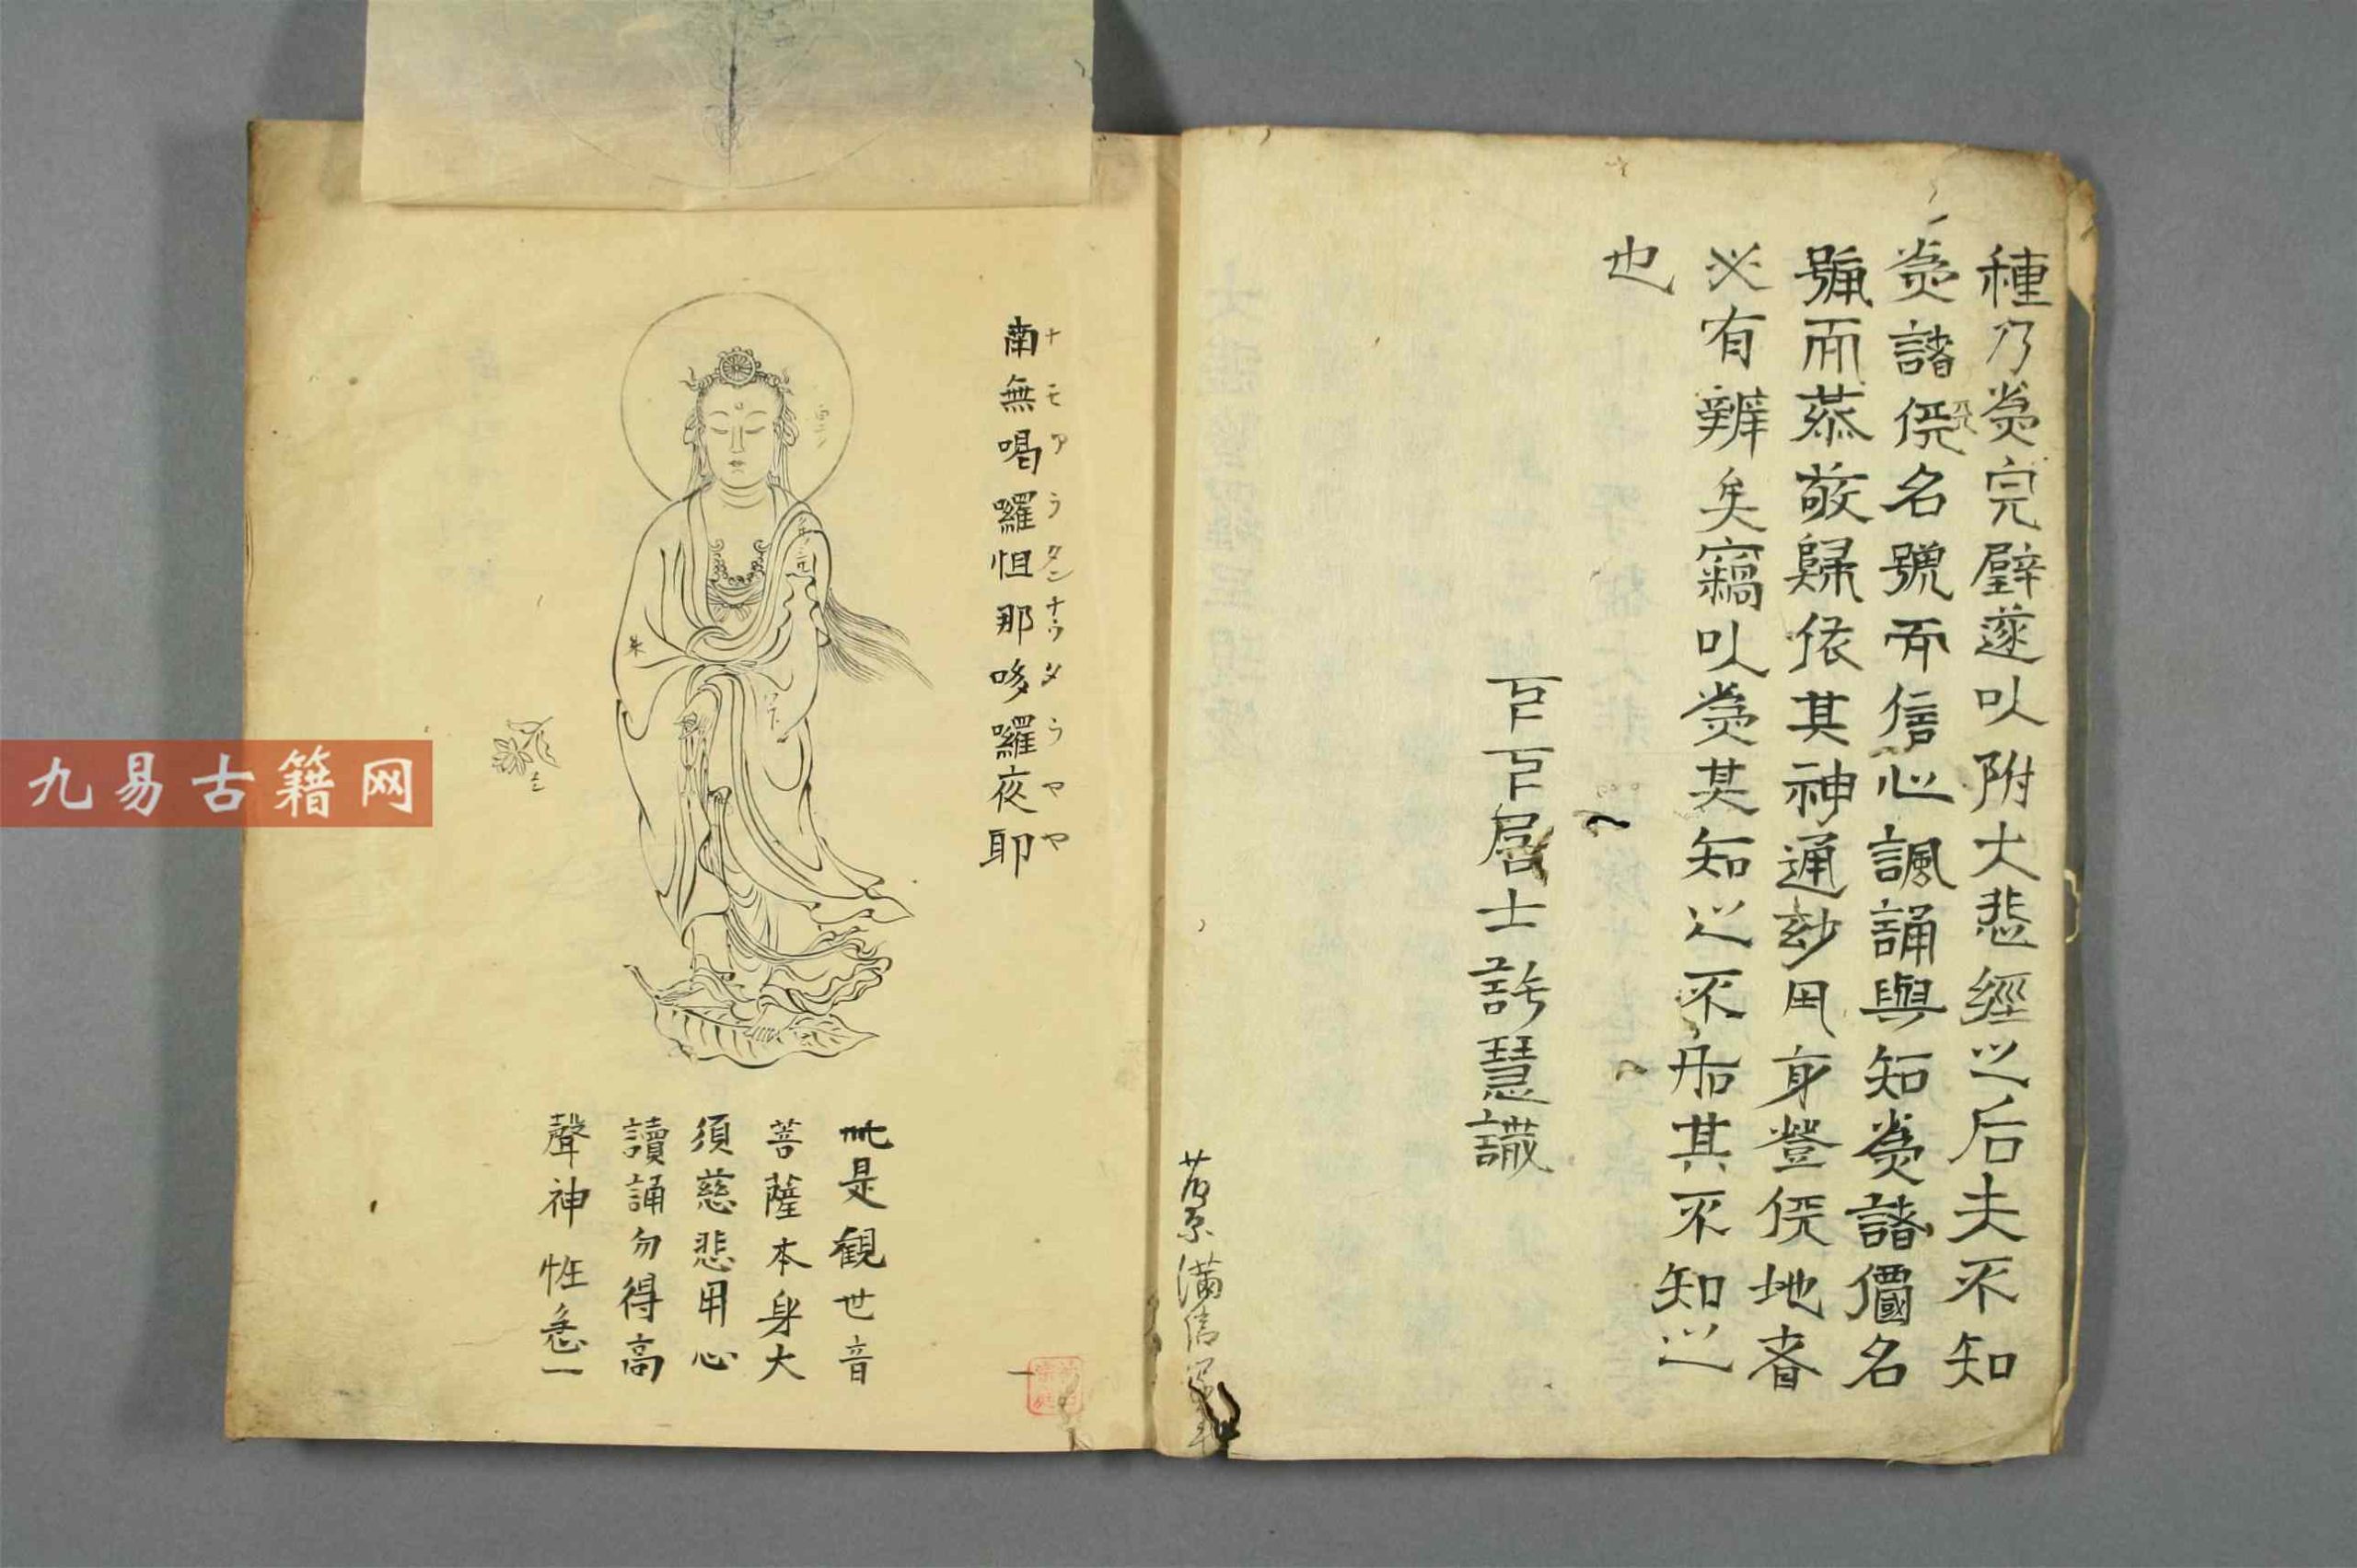 種乃為完璧遂以附大悲經之后夫不知
為諸侭名號而信心諷誦與知為諸價名
號而恭敬歸依其神通玅用身登侭地者
必有辨矣竊以為其知之不啚其不知之
也
百百居士許慧識
南無喝囉怛那哆囉夜耶
ナモアラタンナウタラヤヤ
此是観世音
菩薩本身大
須慈悲用心
讀誦勿得高
聲神性急一
九易古籍网